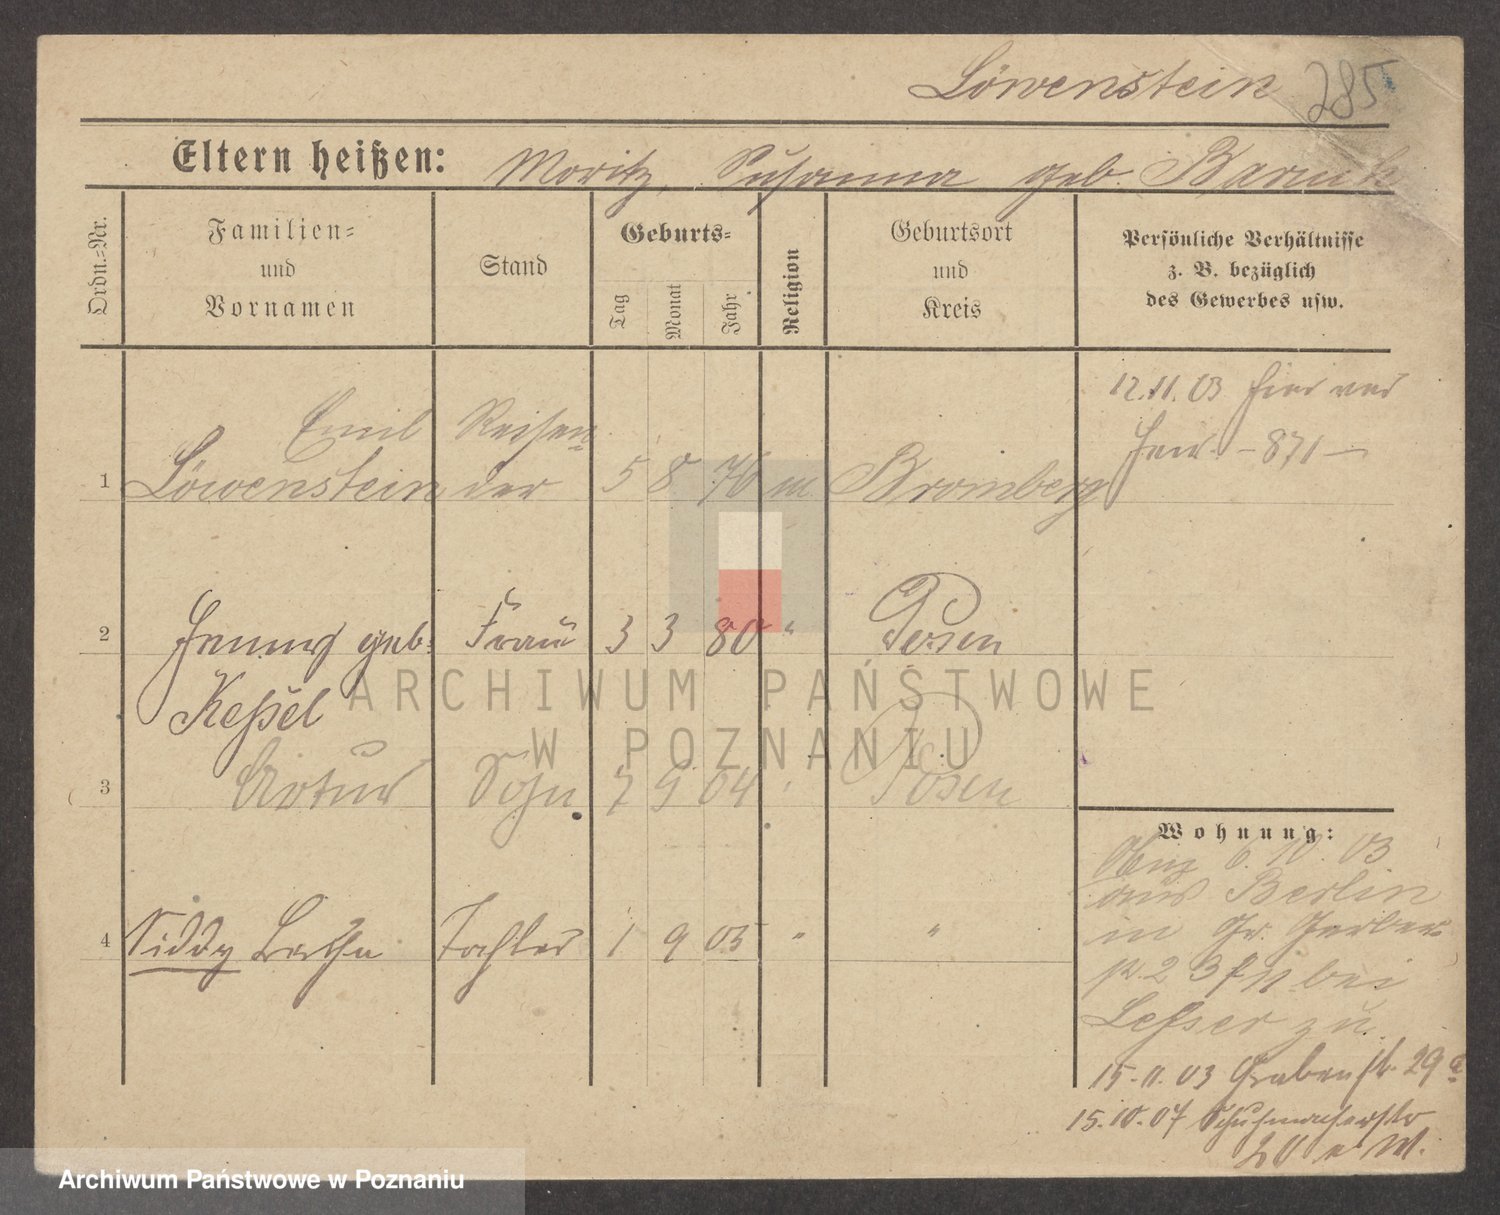 Löwenstein 285
Eltern heißen: Moritz, Susanna geb. Baruch
Ordn.-Nr.
Familien-
und
Vornamen
Stand
Geburts-
Tag
Monat
Jahr
Religion
Geburtsort
und
Kreis
Persönliche Verhältnisse
z. B. bezüglich
des Gewerbes usw.
12.11.03 hier ver
heir. - 871 -
Emil Reisen-
1 Löwenstein der 5 8 76 m. Bromberg
2 Jenny geb. Frau 3 3 80 " Posen
Keßel
3 Artur Sohn 7 9 04 " Posen
4 Siddy Bertha Tochter 1 9 05 " "
Wohnung:
6.10.03
aus Berlin
in Gr. Gerber-
23 bei
Lesser zu
15.11.03 Grabenstr. 29a
15.10.07 Schuhmacherstr
20 e. W.
ARCHIWUM PAŃSTWOWE
W POZNANIU
Archiwum Państwowe w Poznaniu